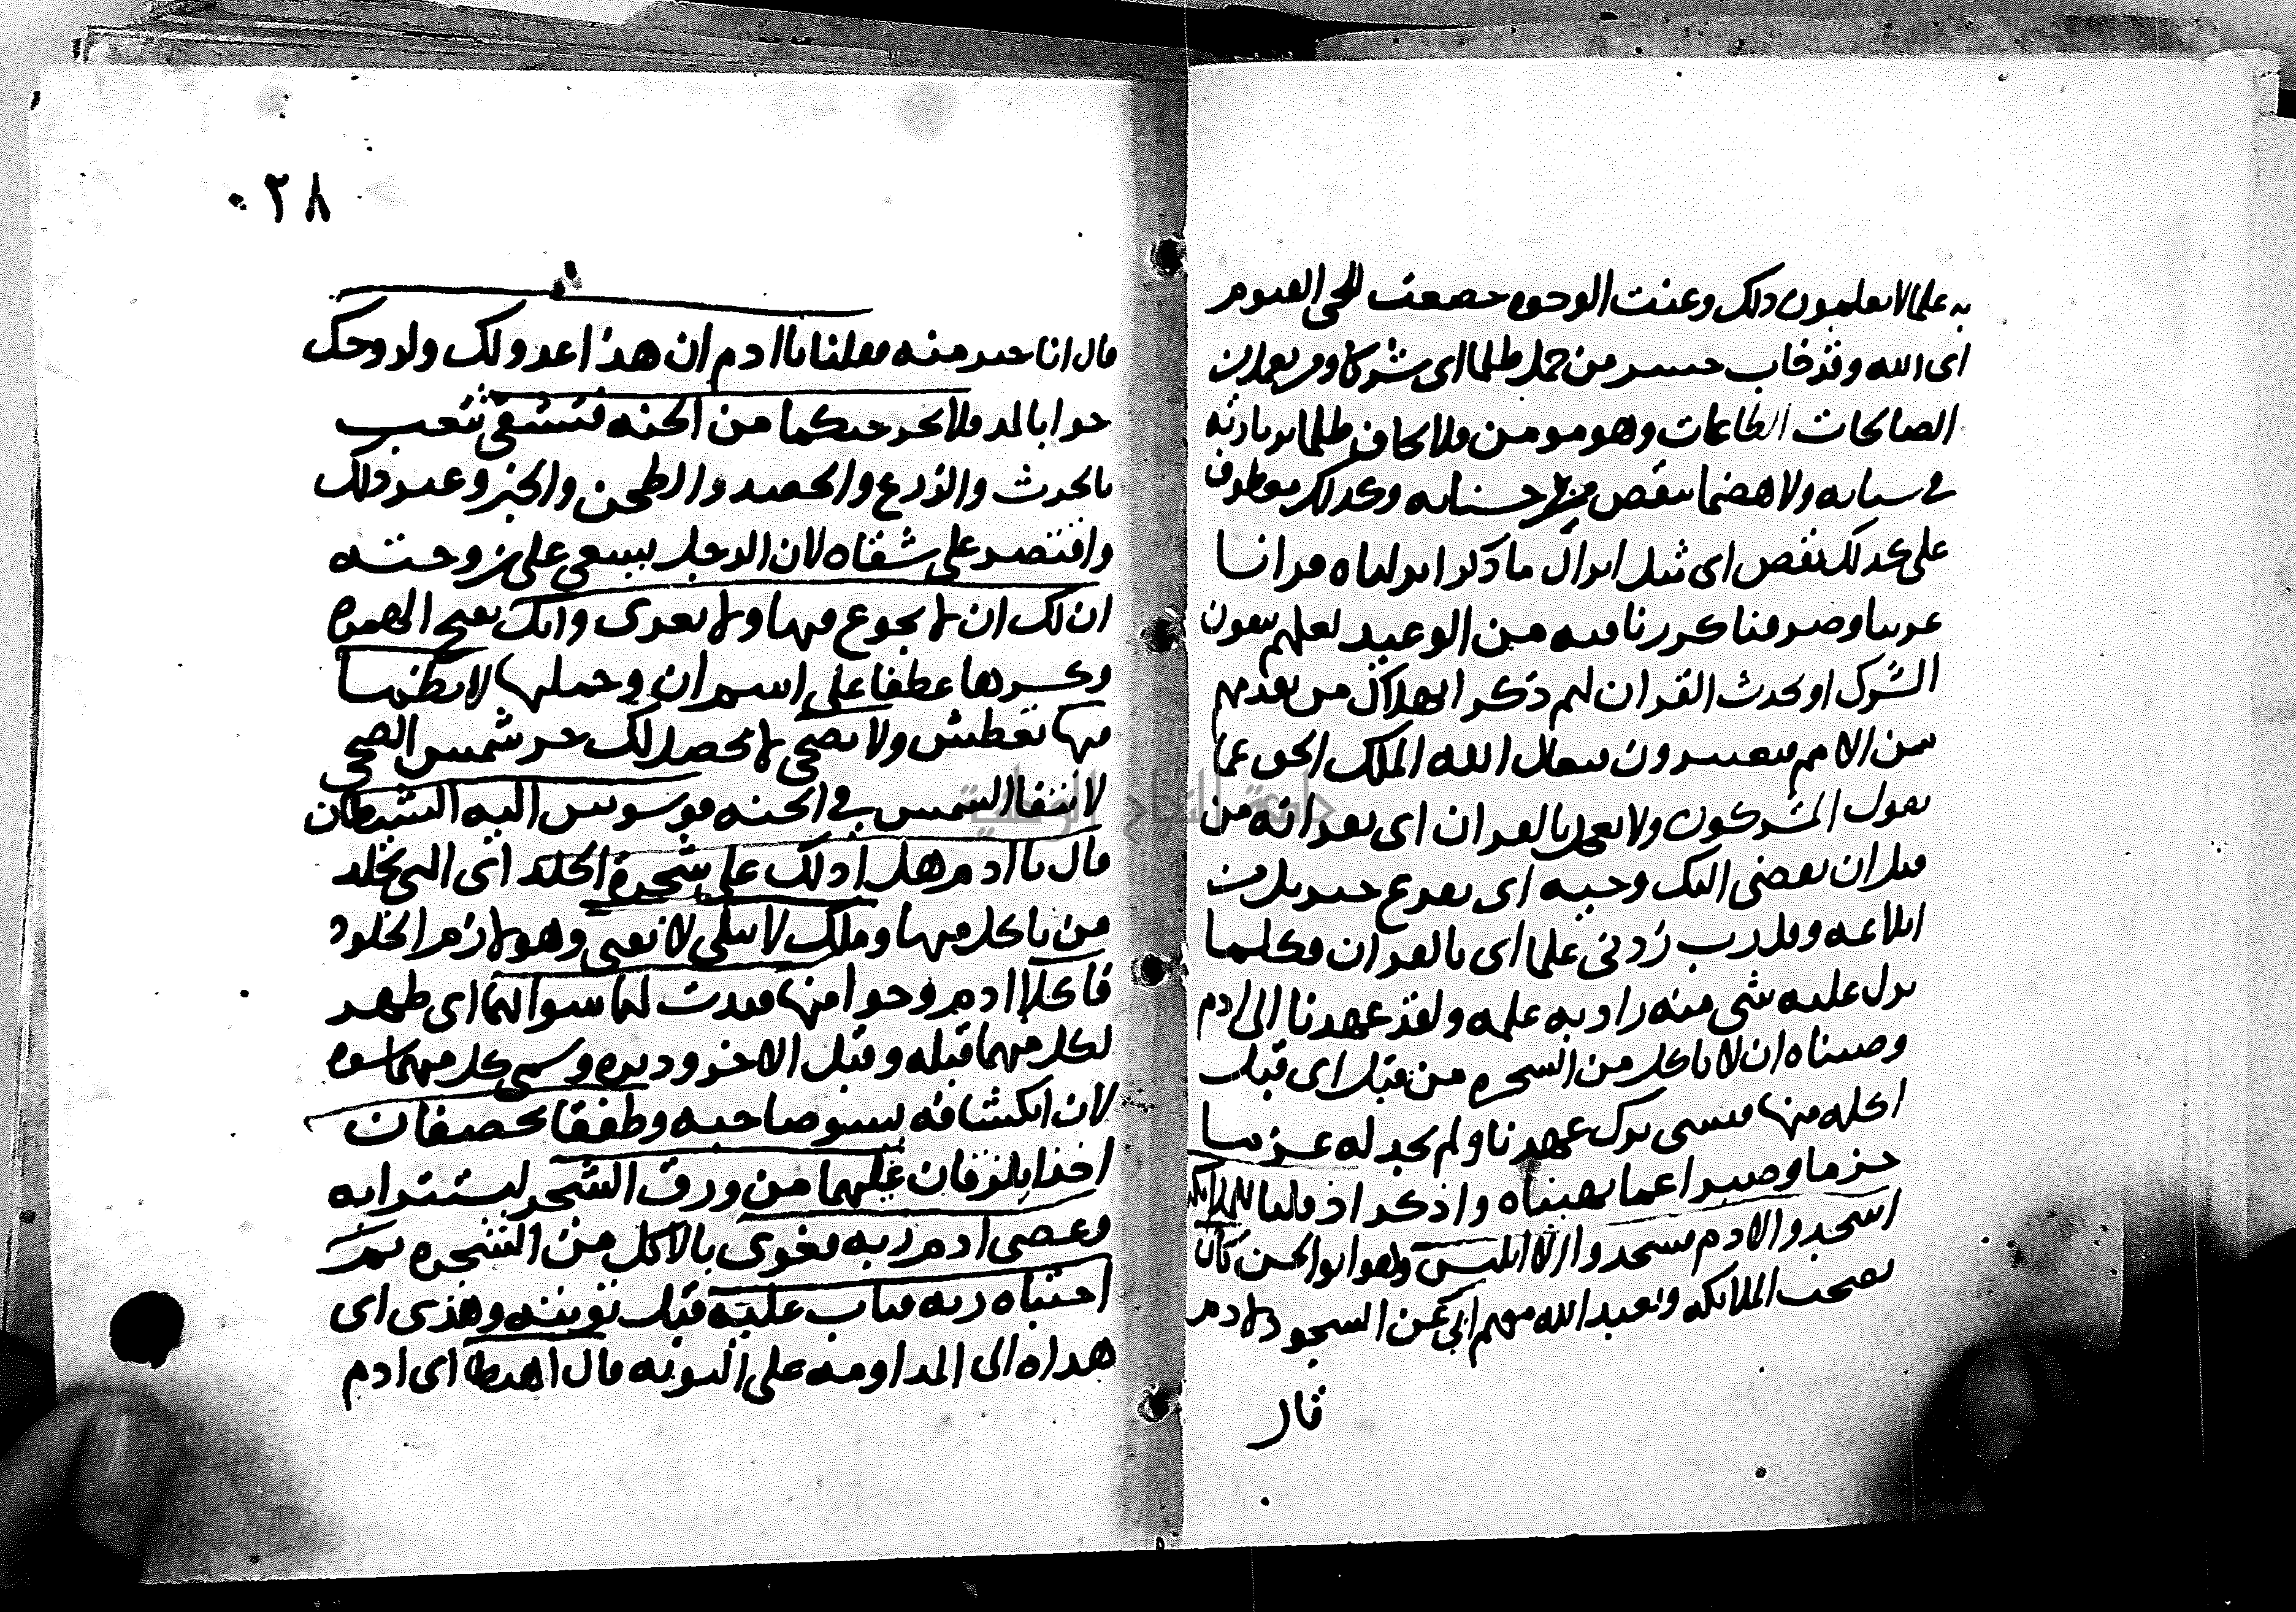 به علما لا يعلمون ذلك وعنت الوجوه خضعت للحي القيوم
اى الله وقد خاب خسر من حمل ظلما اى شركا ومن يعمل من
الصالحات الطاعات وهو مومن فلا يخاف ظلما بزيادة
في سياته ولا هضما بنقص من حسناته وكذلك معطوف
على كذلك نقص اى مثل انزال ما ذكر انزلناه قرانا
عربيا وصرفنا كررنا فيه من الوعيد لعلهم يتقون
الشرك او يحدث القران لهم ذكرا بهلاك من تقدمهم
من الامم فيعتبرون فتعالى الله الملك الحق عما
يقول المشركون ولا تعجل بالقران اى بقراته من
قبل ان يقضى اليك وحيه اى يفرغ جبريل من
ابلاغه وقل رب زدنى علما اى بالقران فكلما
نزل عليه شى منه زاد به علمه ولقد عهدنا الى ادم
وصيناه ان لا ياكل من الشجره من قبل اى قبل
اكله منها فنسى ترك عهدنا ولم نجد له عزما
حزما وصبرا عما نهيناه واذكر اذ قلنا للملايكه
اسجدوا لادم فسجدوا الا ابليس وهو ابو الجن كان
يصحب الملايكه ويعبد الله معهم ابى عن السجود لادم
قال
٠٢٨
قال انا خير منه فقلنا ياادم ان هذا عدو لك ولزوجك
حوا بالمد فلا يخرجنكما من الجنه فتشقى تتعب
بالحرث والزرع والحصد والطحن والخبز وغير ذلك
واقتصر على شقاه لان الرجل يسعى على زوجته
ان لك ان لا تجوع فيها ولا تعرى وانك بفتح الهمزه
وكسرها عطفا على اسم ان وجملتها لا تظمؤا
فيها تعطش ولا تضحى لا يحصل لك حر شمس الضحى
لانتفا الشمس في الجنه فوسوس اليه الشيطان
قال ياادم هل ادلك على شجرة الخلد اى التى يخلد
من ياكل منها وملك لا يبلى لا يفنى وهو لازم الخلود
فاكلا ادم وحوا منها فبدت لهما سواتهما اى ظهر
لكل منهما قبله وقبل الاخر ودبره وسمى كل منهما سوه
لان انكشافه يسو صاحبه وطفقا يخصفان
اخذا يلزقان عليهما من ورق الشجر ليستترا به
وعصى ادم ربه فغوى بالاكل من الشجره ثم
اجتباه ربه فتاب عليه قبل توبته وهدى اى
هداه الى المداومه على التوبه قال اهبطا اى ادم